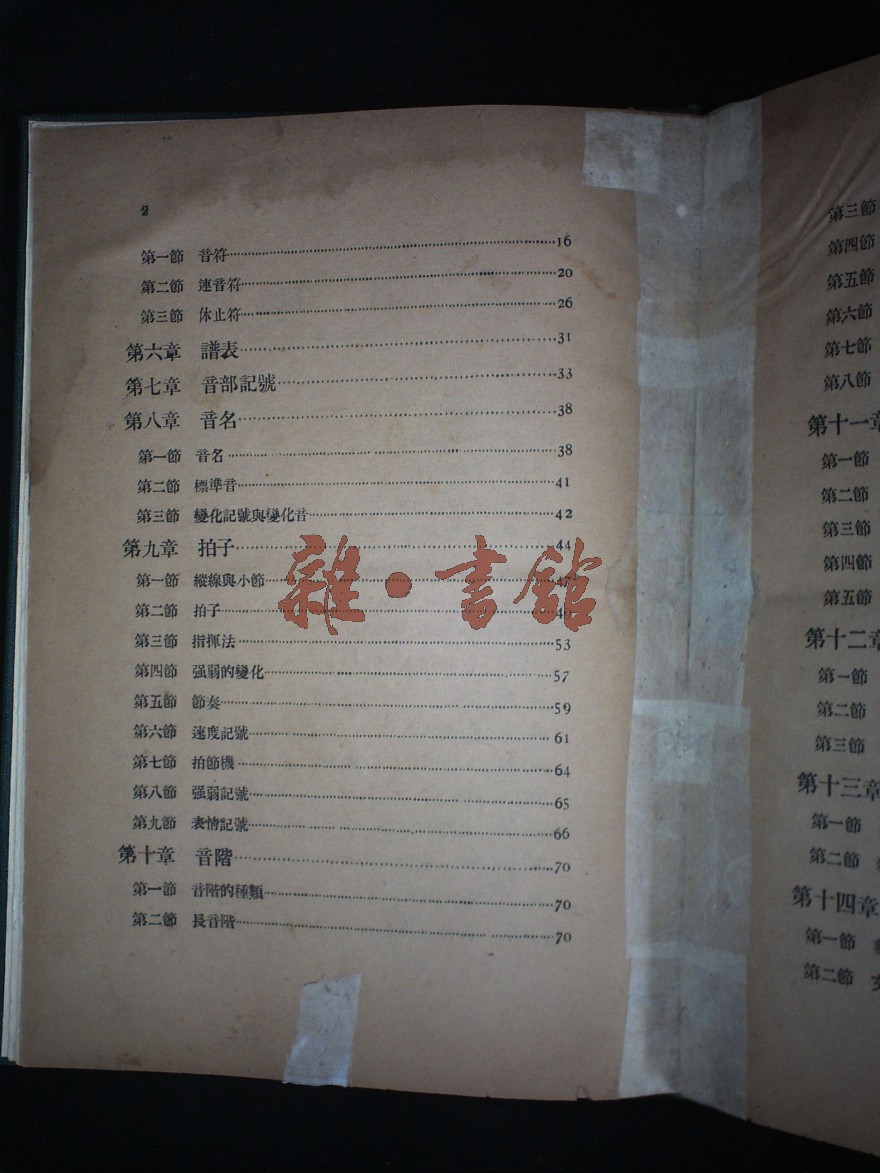 2
第一節 音符……16
第二節 連音符……20
第三節 休止符……26
第六章 譜表……31
第七章 音部記號……33
第八章 音名……38
第一節 音名……38
第二節 標準音……41
第三節 變化記號與變化音……42
第九章 拍子……44
第一節 縱線與小節……47
第二節 拍子……
第三節 指揮法……53
第四節 强弱的變化……57
第五節 節奏……59
第六節 速度記號……61
第七節 拍節機……64
第八節 强弱記號……65
第九節 表情記號……66
第十章 音階……70
第一節 音階的種類……70
第二節 長音階……70
雜·書館
第三節
第四節
第五節
第六節
第七節
第八節
第十一章
第一節
第二節
第三節
第四節
第五節
第十二章
第一節
第二節
第三節
第十三章
第一節
第二節
第十四章
第一節
第二節